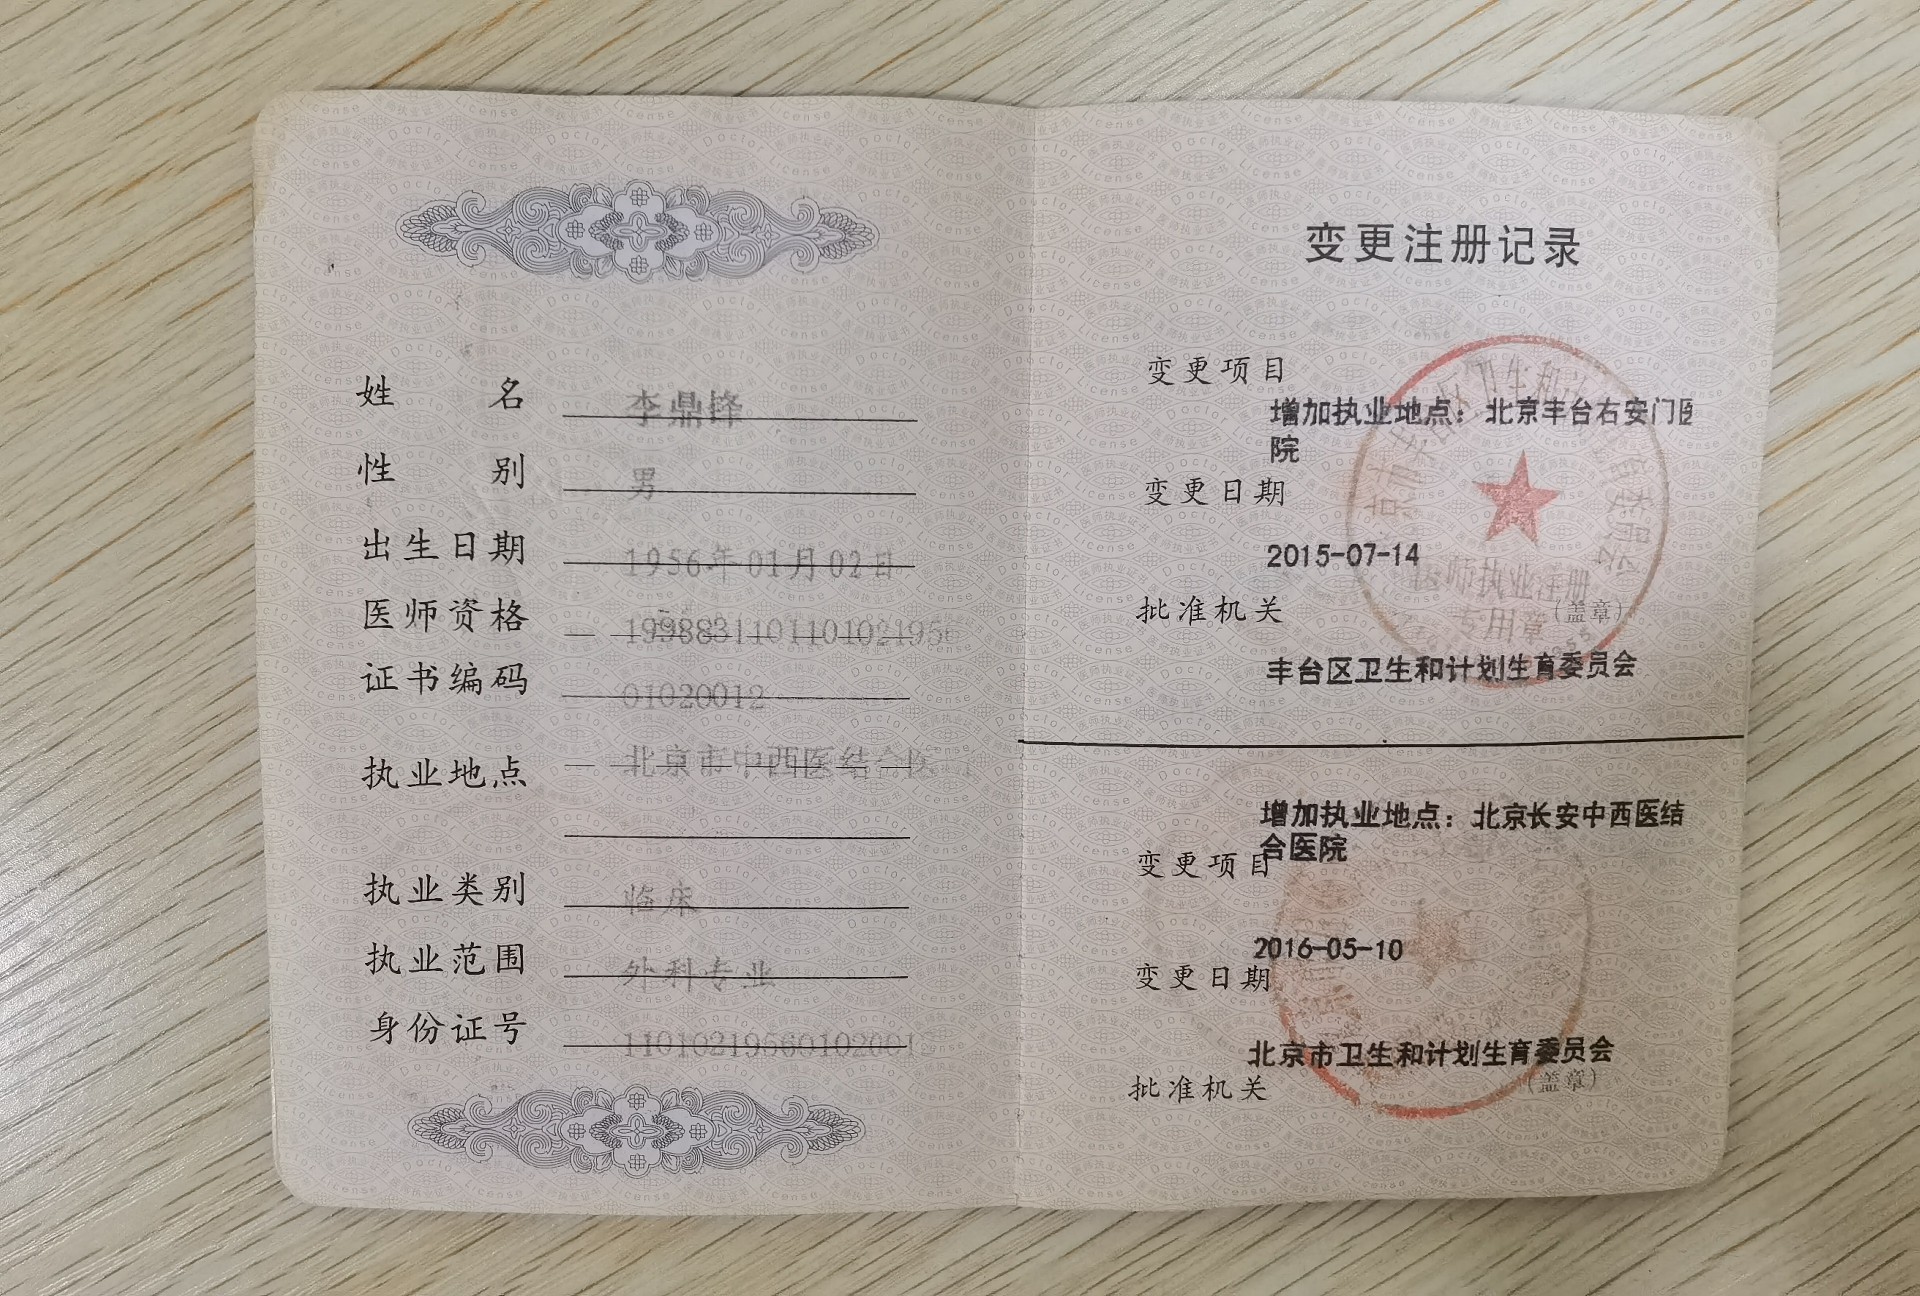 姓名 李鼎锋
性别 男
出生日期 1956年01月02日
医师资格 199883110110102195
证书编码 01020012
执业地点 北京市中西医结合医
执业类别 临床
执业范围 外科专业
身份证号 11010219560102001
变更注册记录
变更项目
增加执业地点：北京丰台右安门医
院
变更日期
2015-07-14
医师执业注册
批准机关 (盖章)
专用章
丰台区卫生和计划生育委员会
增加执业地点：北京长安中西医结
合医院
变更项目
2016-05-10
变更日期
北京市卫生和计划生育委员会
批准机关 (盖章)